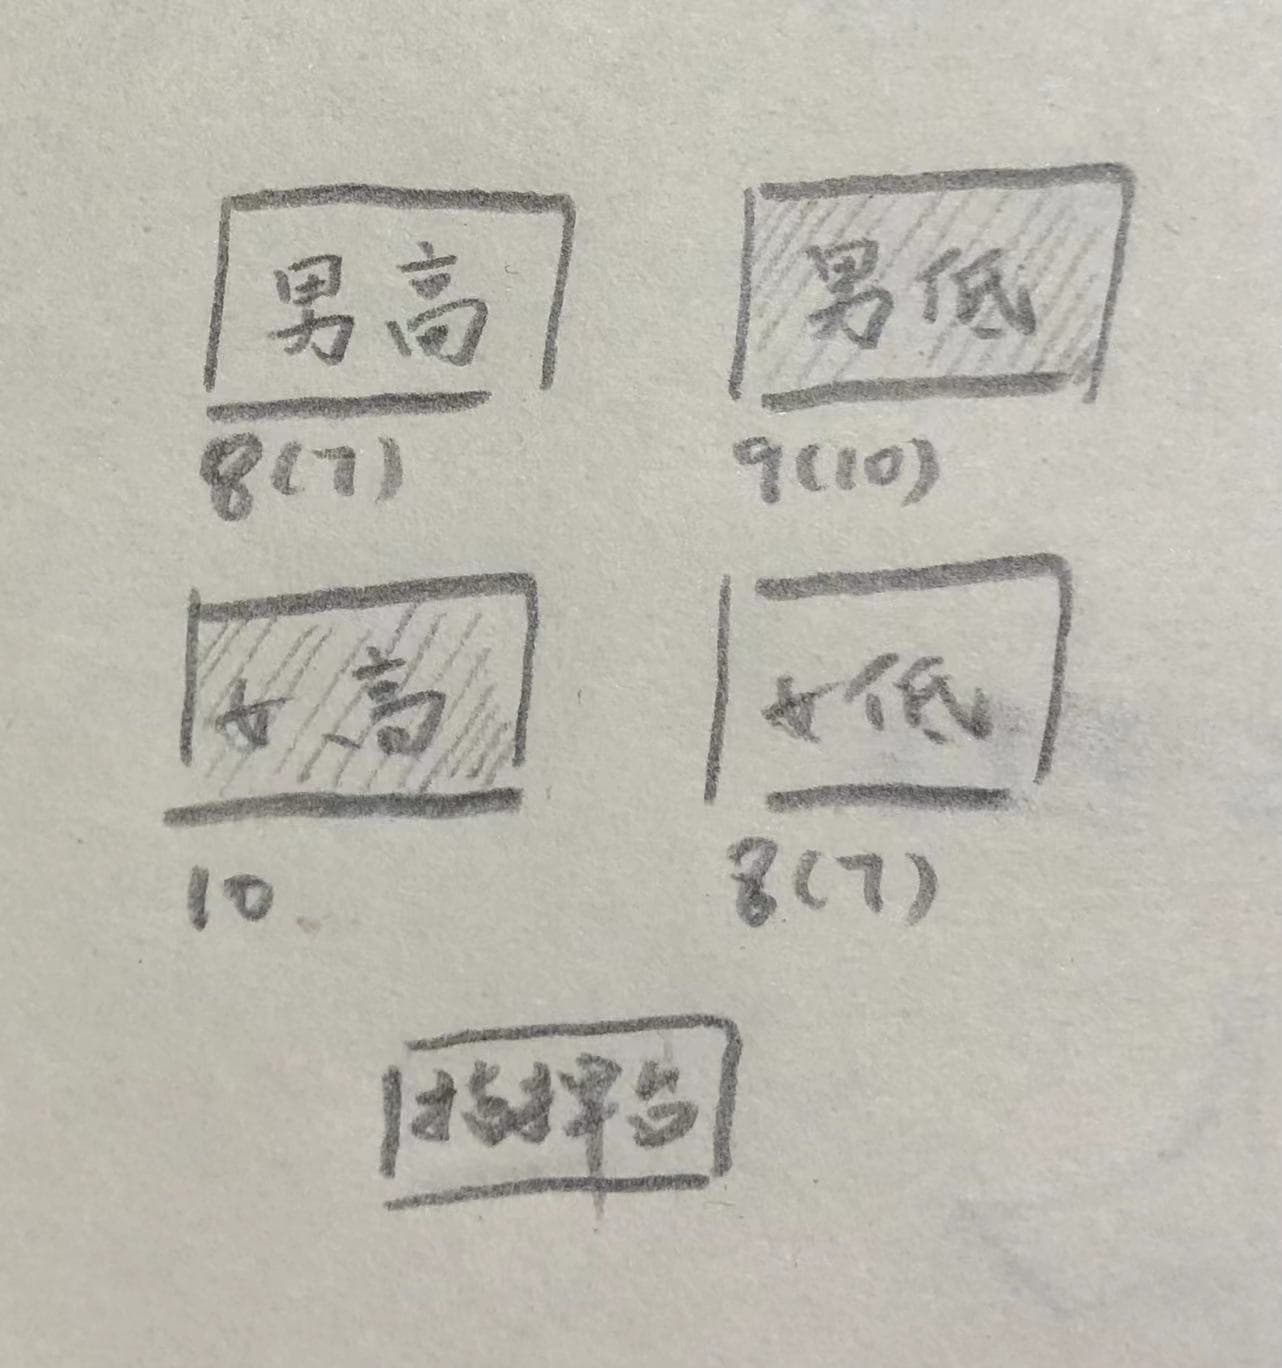 男高 男低
8(7) 9(10)
女高 女低
10 8(7)
指挥台